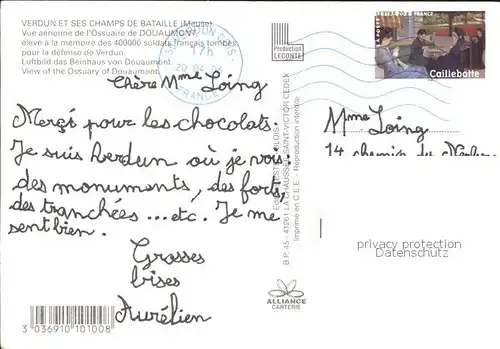 VERDUN ET SES CHAMPS DE BATAILLE (Meuse)
Vue aérienne de l'Ossuaire de DOUAUMONT,
élevé à la mémoire des 400000 soldats français tombés
pour la défense de Verdun.
Luftbild das Beinhaus von Douaumont.
View of the Ossuary of Douaumont.
17h
FRANCE
Production
LECONTE
FRANCE
Caillebotte
Chère Mme Loing
Merçi pour les chocolats.
Je suis Verdun où je vois
des monuments, des forts,
des tranchées ...etc. Je me
sent bien.
Grosses
bises
Aurélien
Mme Loing
14 chemin du
B.P. 45 - 41261 LA CHAUSSÉE SAINT-VICTOR CEDEX
Imprimé en C.E.E. - Reproduction interdite
privacy protection
Datenschutz
ALLIANCE
CARTERIE
3 036910 101008